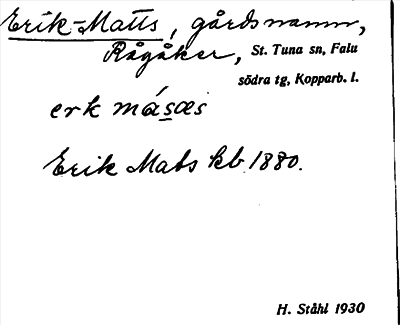 Erik-Matts, gårdsnamn,
Rågåker, St. Tuna sn, Falu
södra tg, Kopparb. l.
erk másæs
Erik Mats kb 1880.
H. Ståhl 1930